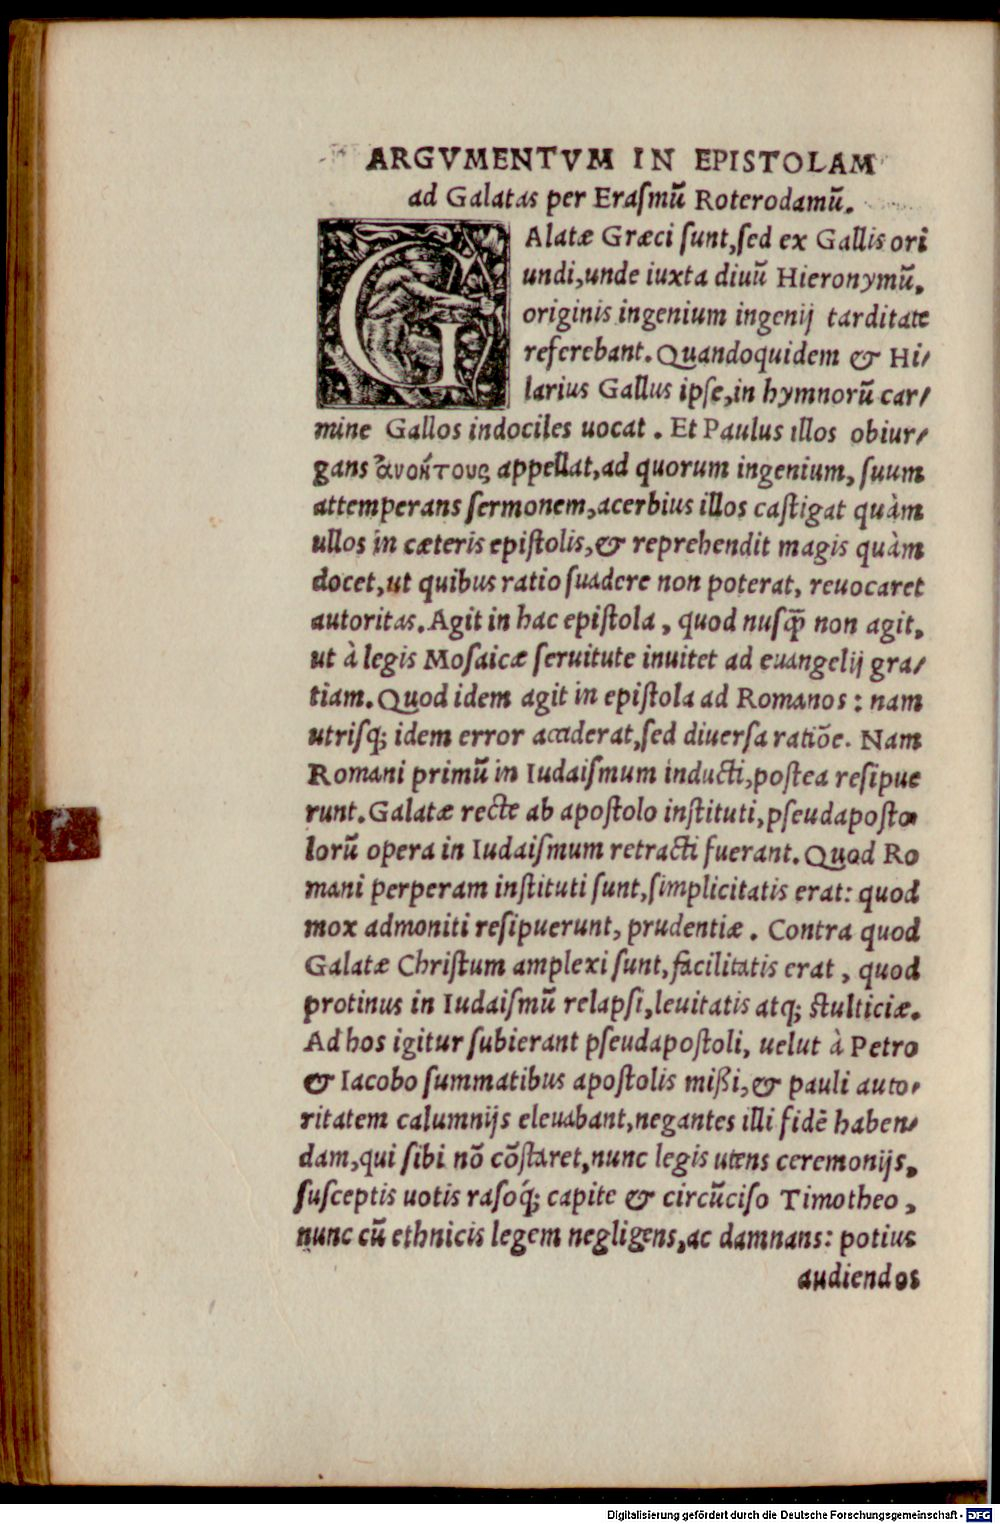 ARGVMENTVM IN EPISTOLAM
ad Galatas per Eraſmū Roterodamū.
GAlatæ Græci ſunt,ſed ex Gallis ori
undi,unde iuxta diuū Hieronymū,
originis ingenium ingenij tarditate
referebant. Quandoquidem & Hi/
larius Gallus ipſe,in hymnorū car/
mine Gallos indociles uocat . Et Paulus illos obiur/
gans ἀνοήτους appellat,ad quorum ingenium, ſuum
attemperans ſermonem,acerbius illos caſtigat quàm
ullos in cæteris epiſtolis,& reprehendit magis quàm
docet,ut quibus ratio ſuadere non poterat, reuocaret
autoritas. Agit in hac epiſtola , quod nuſq̃ non agit,
ut à legis Moſaicæ ſeruitute inuitet ad euangelij gra/
tiam. Quod idem agit in epiſtola ad Romanos : nam
utriſq; idem error acciderat,ſed diuerſa ratiõe. Nam
Romani primū in Iudaiſmum inducti,poſtea reſipue
runt. Galatæ recte ab apoſtolo inſtituti,pſeudapoſto
lorū opera in Iudaiſmum retracti fuerant. Quod Ro
mani perperam inſtituti ſunt,ſimplicitatis erat: quod
mox admoniti reſipuerunt, prudentiæ . Contra quod
Galatæ Chriſtum amplexi ſunt,facilitatis erat , quod
protinus in Iudaiſmū relapſi,leuitatis atq; ſtulticiæ.
Ad hos igitur ſubierant pſeudapoſtoli, uelut à Petro
& Iacobo ſummatibus apoſtolis mißi,& pauli auto/
ritatem calumnijs eleuabant,negantes illi fidē haben/
dam,qui ſibi nō cōſtaret,nunc legis utens ceremonijs,
ſuſceptis uotis raſoq́; capite & circūciſo Timotheo ,
nunc cū ethnicis legem negligens,ac damnans: potius
audiendos
Digitalisierung gefördert durch die Deutsche Forschungsgemeinschaft - DFG